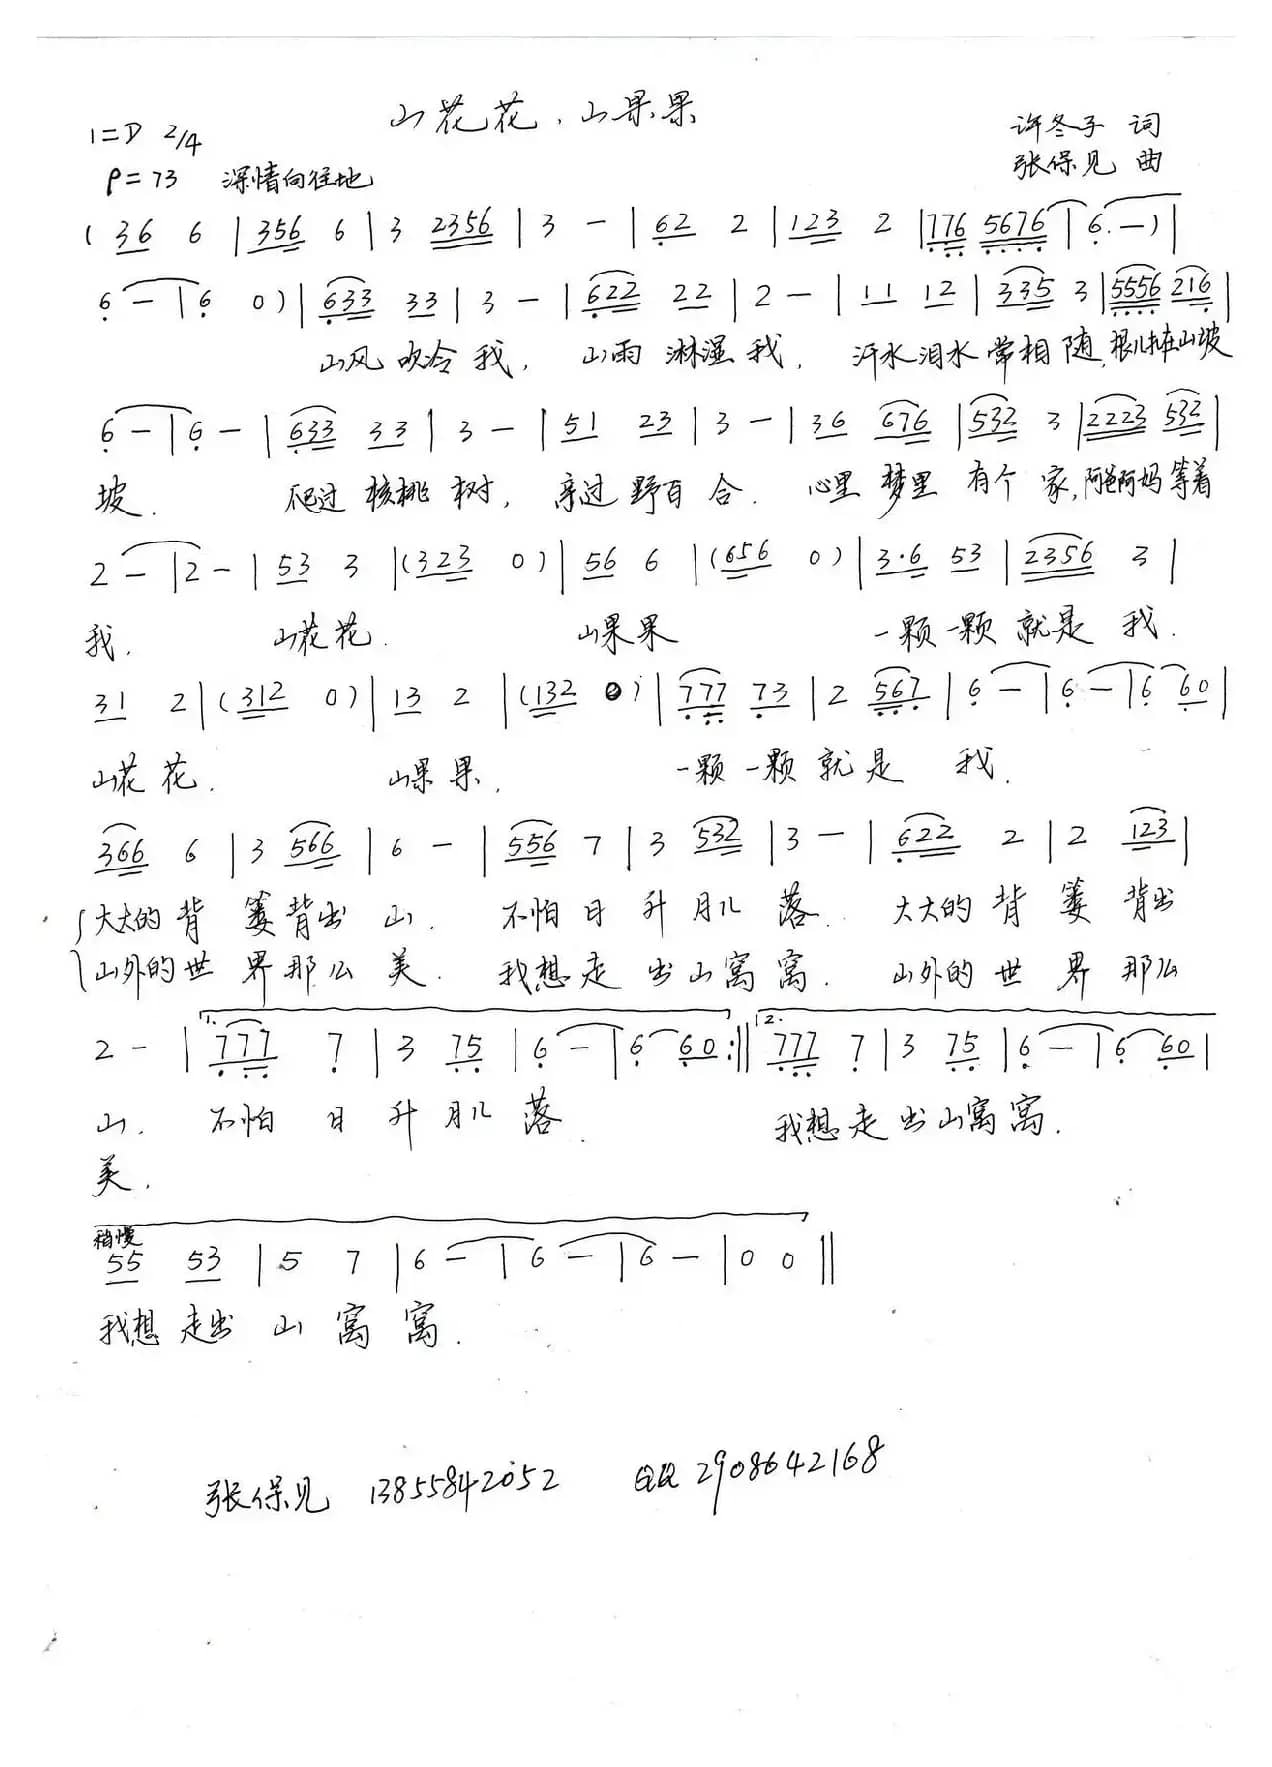 山花花、山果果
1=D 2/4
许冬子 词
♩=73 深情向往地
张保见 曲
( 36 6 | 356 6 | 3 2356 | 3 — | 62 2 | 123 2 | 776 5676 | 6. — ) |
6 — | 6 0 ) | 633 33 | 3 — | 622 22 | 2 — | 11 12 | 335 3 | 5556 216 |
山风 吹冷 我, 山雨 淋湿 我, 汗水 泪水 常相 随, 根儿扎在山坡
6 — | 6 — | 633 33 | 3 — | 51 23 | 3 — | 36 676 | 532 3 | 2223 532 |
坡. 爬过 核桃 树, 亲过 野百 合. 心里 梦里 有个 家, 阿爸阿妈 等着
2 — | 2 — | 53 3 | (323 0) | 56 6 | (656 0) | 3·6 53 | 2356 3 |
我. 山花花. 山果果 一颗一颗 就是 我.
31 2 | (312 0) | 13 2 | (132 0) | 777 73 | 2 567 | 6 — | 6 — | 6 60 |
山花 花. 山果 果. 一颗 一颗 就是 我.
366 6 | 3 566 | 6 — | 556 7 | 3 532 | 3 — | 622 2 | 2 123 |
大大的 背 篓 背出 山. 不怕 日 升 月儿 落. 大大的 背 篓 背出
山外的 世 界 那么 美. 我想 走 出 山窝 窝. 山外的 世 界 那么
2 — | 1. 777 7 | 3 75 | 6 — | 6 60 :‖ 2. 777 7 | 3 75 | 6 — | 6 60 |
山. 不怕 日 升 月儿 落. 我想 走 出 山窝 窝.
美.
稍慢
55 53 | 5 7 | 6 — | 6 — | 6 — | 0 0 ‖
我想 走出 山 窝 窝.
张保见 13855842052 QQ 2908642168